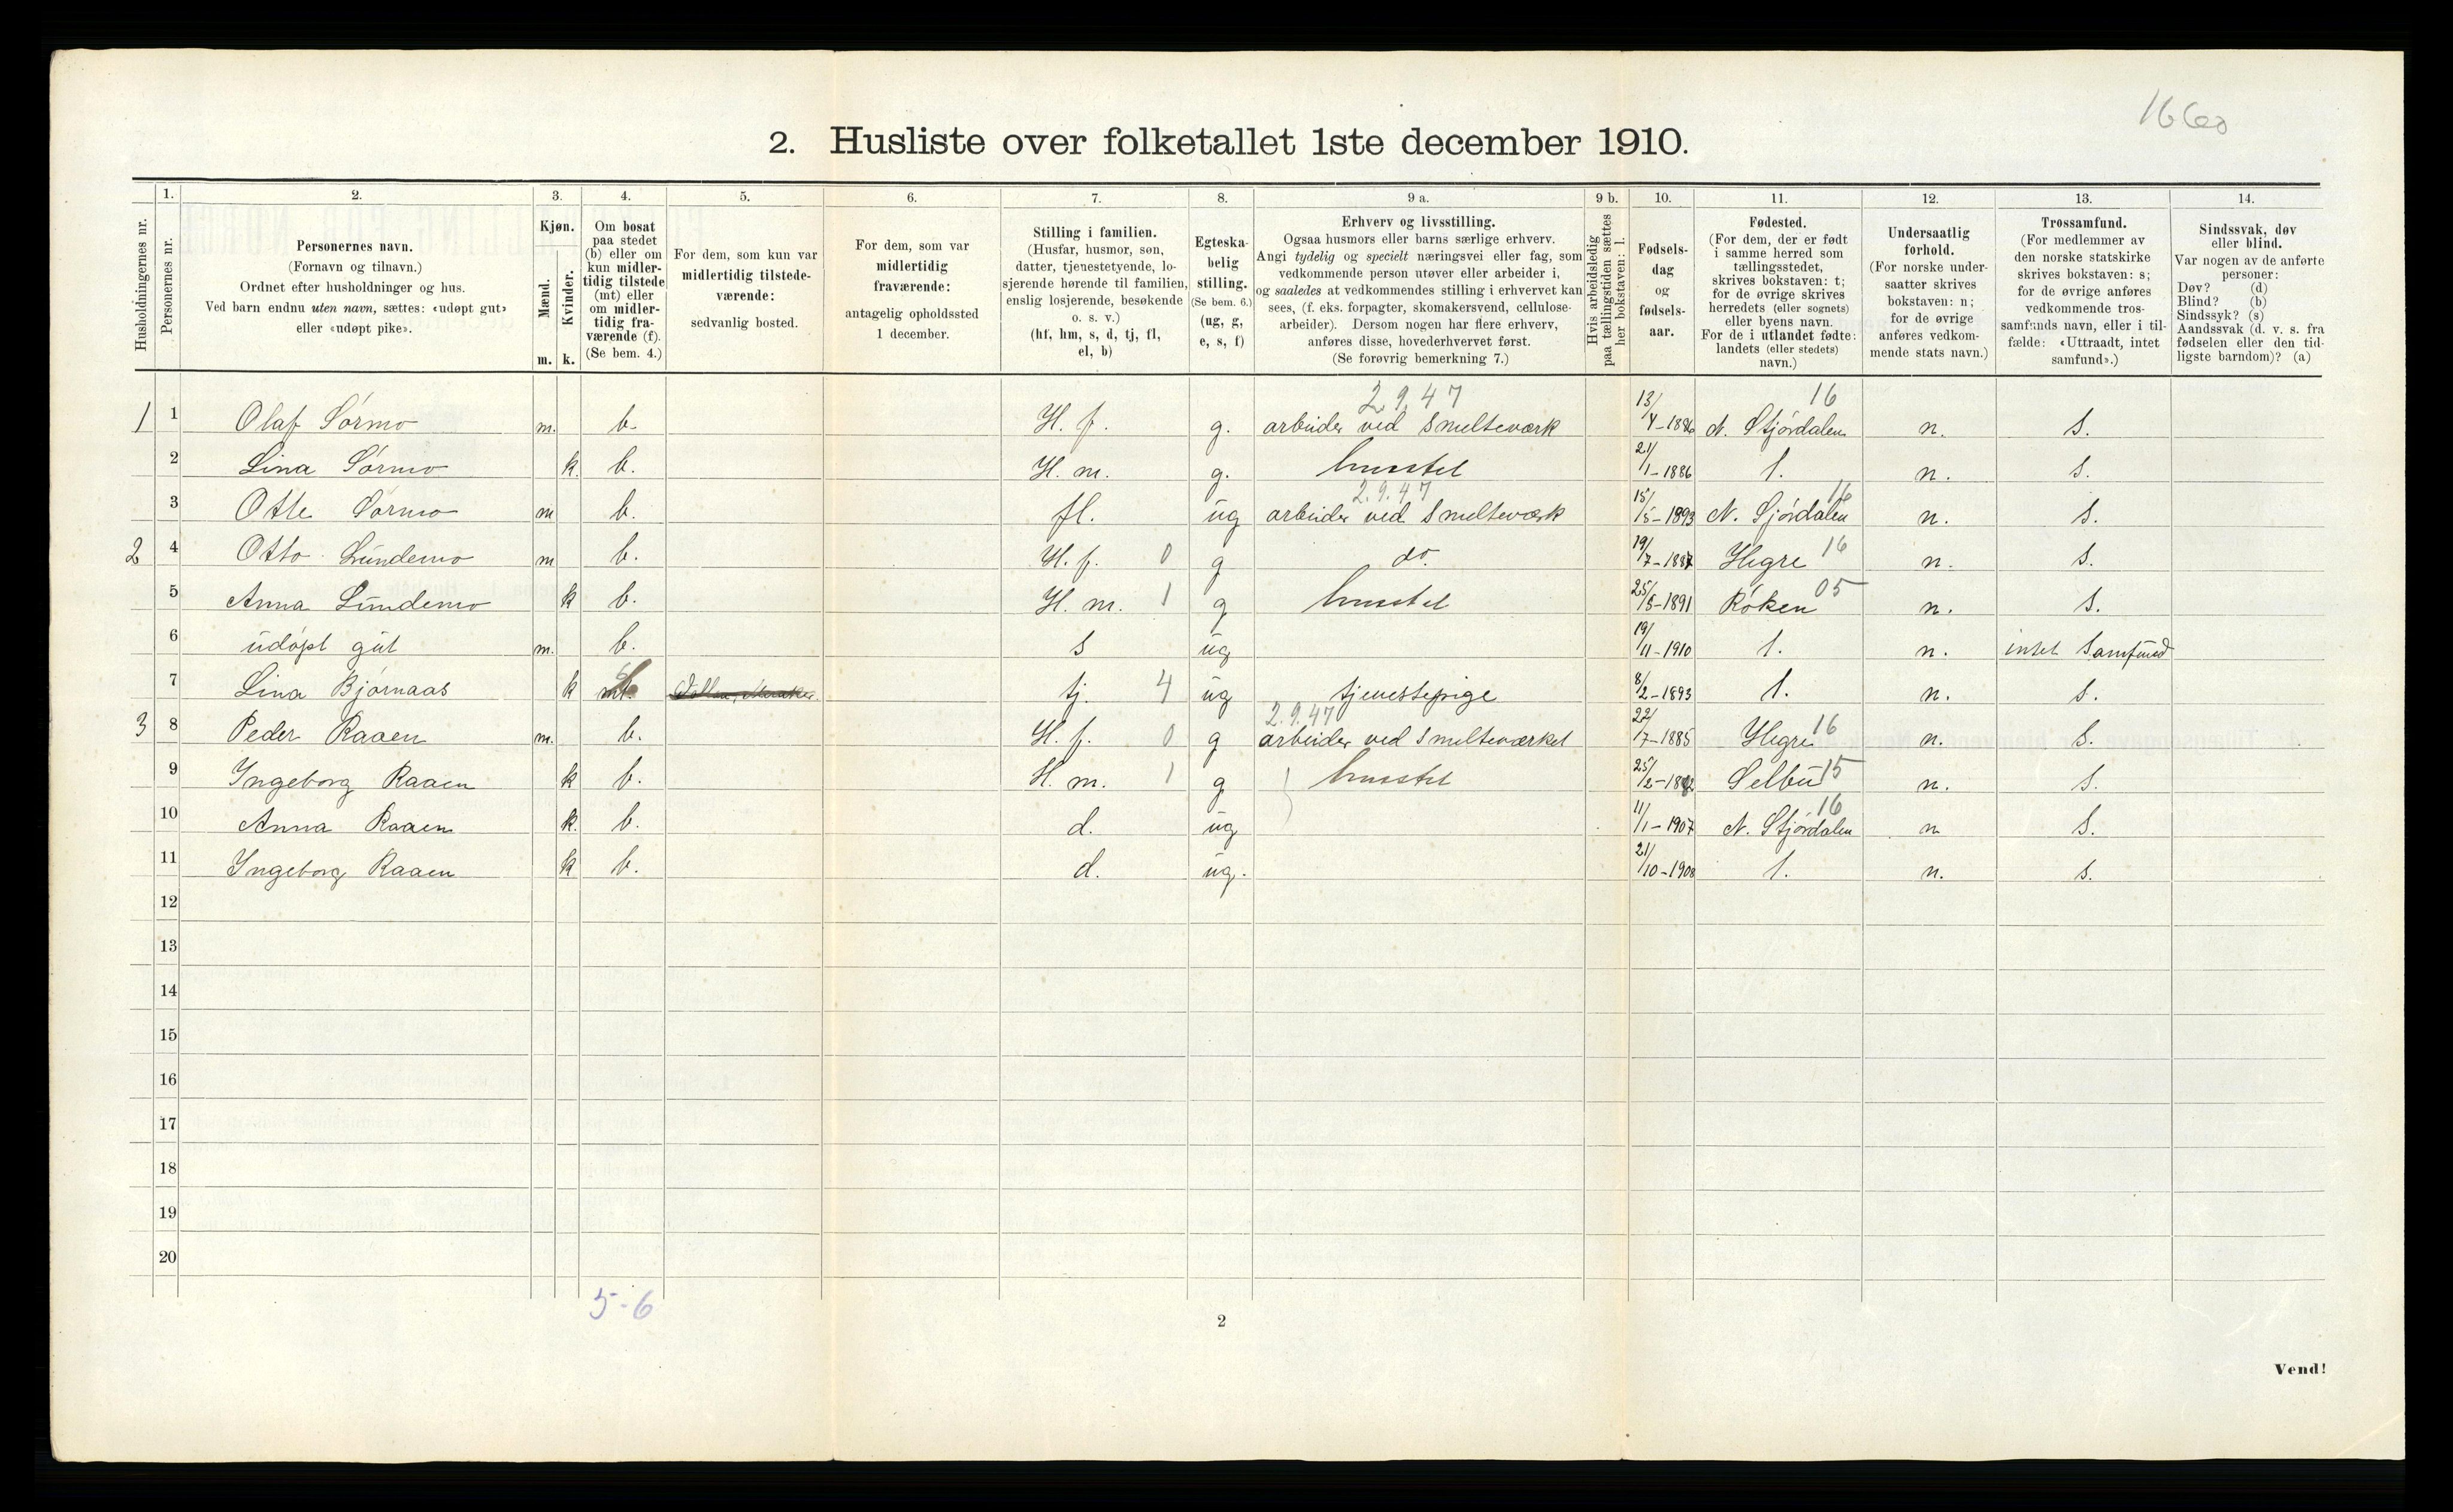 1660
2. Husliste over folketallet 1ste december 1910.
Husholdningernes nr.
1. Personernes nr.
2. Personernes navn.
(Fornavn og tilnavn.)
Ordnet efter husholdninger og hus.
Ved barn endnu uten navn, sættes: «udøpt gut»
eller «udøpt pike».
3. Kjøn.
Mænd. Kvinder.
m. k.
4. Om bosat
paa stedet
(b) eller om
kun midler-
tidig tilstede
(mt) eller
om midler-
tidig fra-
værende (f).
(Se bem. 4.)
5. For dem, som kun var
midlertidig tilstede-
værende:
sedvanlig bosted.
6. For dem, som var
midlertidig
fraværende:
antagelig opholdssted
1 december.
7. Stilling i familien.
(Husfar, husmor, søn,
datter, tjenestetyende, lo-
sjerende hørende til familien,
enslig losjerende, besøkende
o. s. v.)
(hf, hm, s, d, tj, fl,
el, b)
8. Egteska-
belig
stilling.
(Se bem. 6.)
(ug, g,
e, s, f)
9 a. Erhverv og livsstilling.
Ogsaa husmors eller barns særlige erhverv.
Angi tydelig og specielt næringsvei eller fag, som
vedkommende person utøver eller arbeider i,
og saaledes at vedkommendes stilling i erhvervet kan
sees, (f. eks. forpagter, skomakersvend, cellulose-
arbeider). Dersom nogen har flere erhverv,
anføres disse, hovederhvervet først.
(Se forøvrig bemerkning 7.)
9 b. Hvis arbeidsledig
paa tællingstiden sættes
her bokstaven: l.
10. Fødsels-
dag
og
fødsels-
aar.
11. Fødested.
(For dem, der er født
i samme herred som
tællingsstedet,
skrives bokstaven: t;
for de øvrige skrives
herredets (eller sognets)
eller byens navn.
For de i utlandet fødte:
landets (eller stedets)
navn.)
12. Undersaatlig
forhold.
(For norske under-
saatter skrives
bokstaven: n;
for de øvrige
anføres vedkom-
mende stats navn.)
13. Trossamfund.
(For medlemmer av
den norske statskirke
skrives bokstaven: s;
for de øvrige anføres
vedkommende tros-
samfunds navn, eller i til-
fælde: «Uttraadt, intet
samfund».)
14. Sindssvak, døv
eller blind.
Var nogen av de anførte
personer:
Døv? (d)
Blind? (b)
Sindssyk? (s)
Aandssvak (d. v. s. fra
fødselen eller den tid-
ligste barndom)? (a)
2.9.47 16
1 1 Olaf Sørmo m. b. H. f. g. arbeider ved Smelteværk 13/4-1886 N. Stjørdalen n. S.
2 Lina Sørmo k. b. H. m. g. husstel 21/1-1886 t. n. S.
2.9.47 16
3 Otte Sørmo m b. fl. ug arbeider ved Smelteværk 15/5-1893 N. Sjørdalen n. S.
2 4 Otto Lundemo m b. H. f. 0 g do. 19/7-1887 Hegre 16 n. S.
5 Anna Lundemo k b. H. m. 1 g husstel 25/5-1891 Røken 05 n. S.
6 udøpt gut m. b. s ug 19/11-1910 t. n. intet Samfund
7 Lina Bjørnaas k b tj. 4 ug tjenestepige 8/2-1893 t. n. S.
2.9.47
3 8 Peder Raaen m. b. H. f. 0 g arbeider ved Smelteværket 22/7-1885 Hegre 16 n. S.
9 Ingeborg Raaen k b. H. m. 1 g husstel 25/2-1882 Selbu 15 n. S.
10 Anna Raaen k. b. d. ug 11/1-1907 N. Stjørdalen 16 n S.
11 Ingeborg Raaen k b. d. ug. 21/10-1908 t. n. S.
12
13
14
15
16
17
18
19
20
5-6
2
Vend!